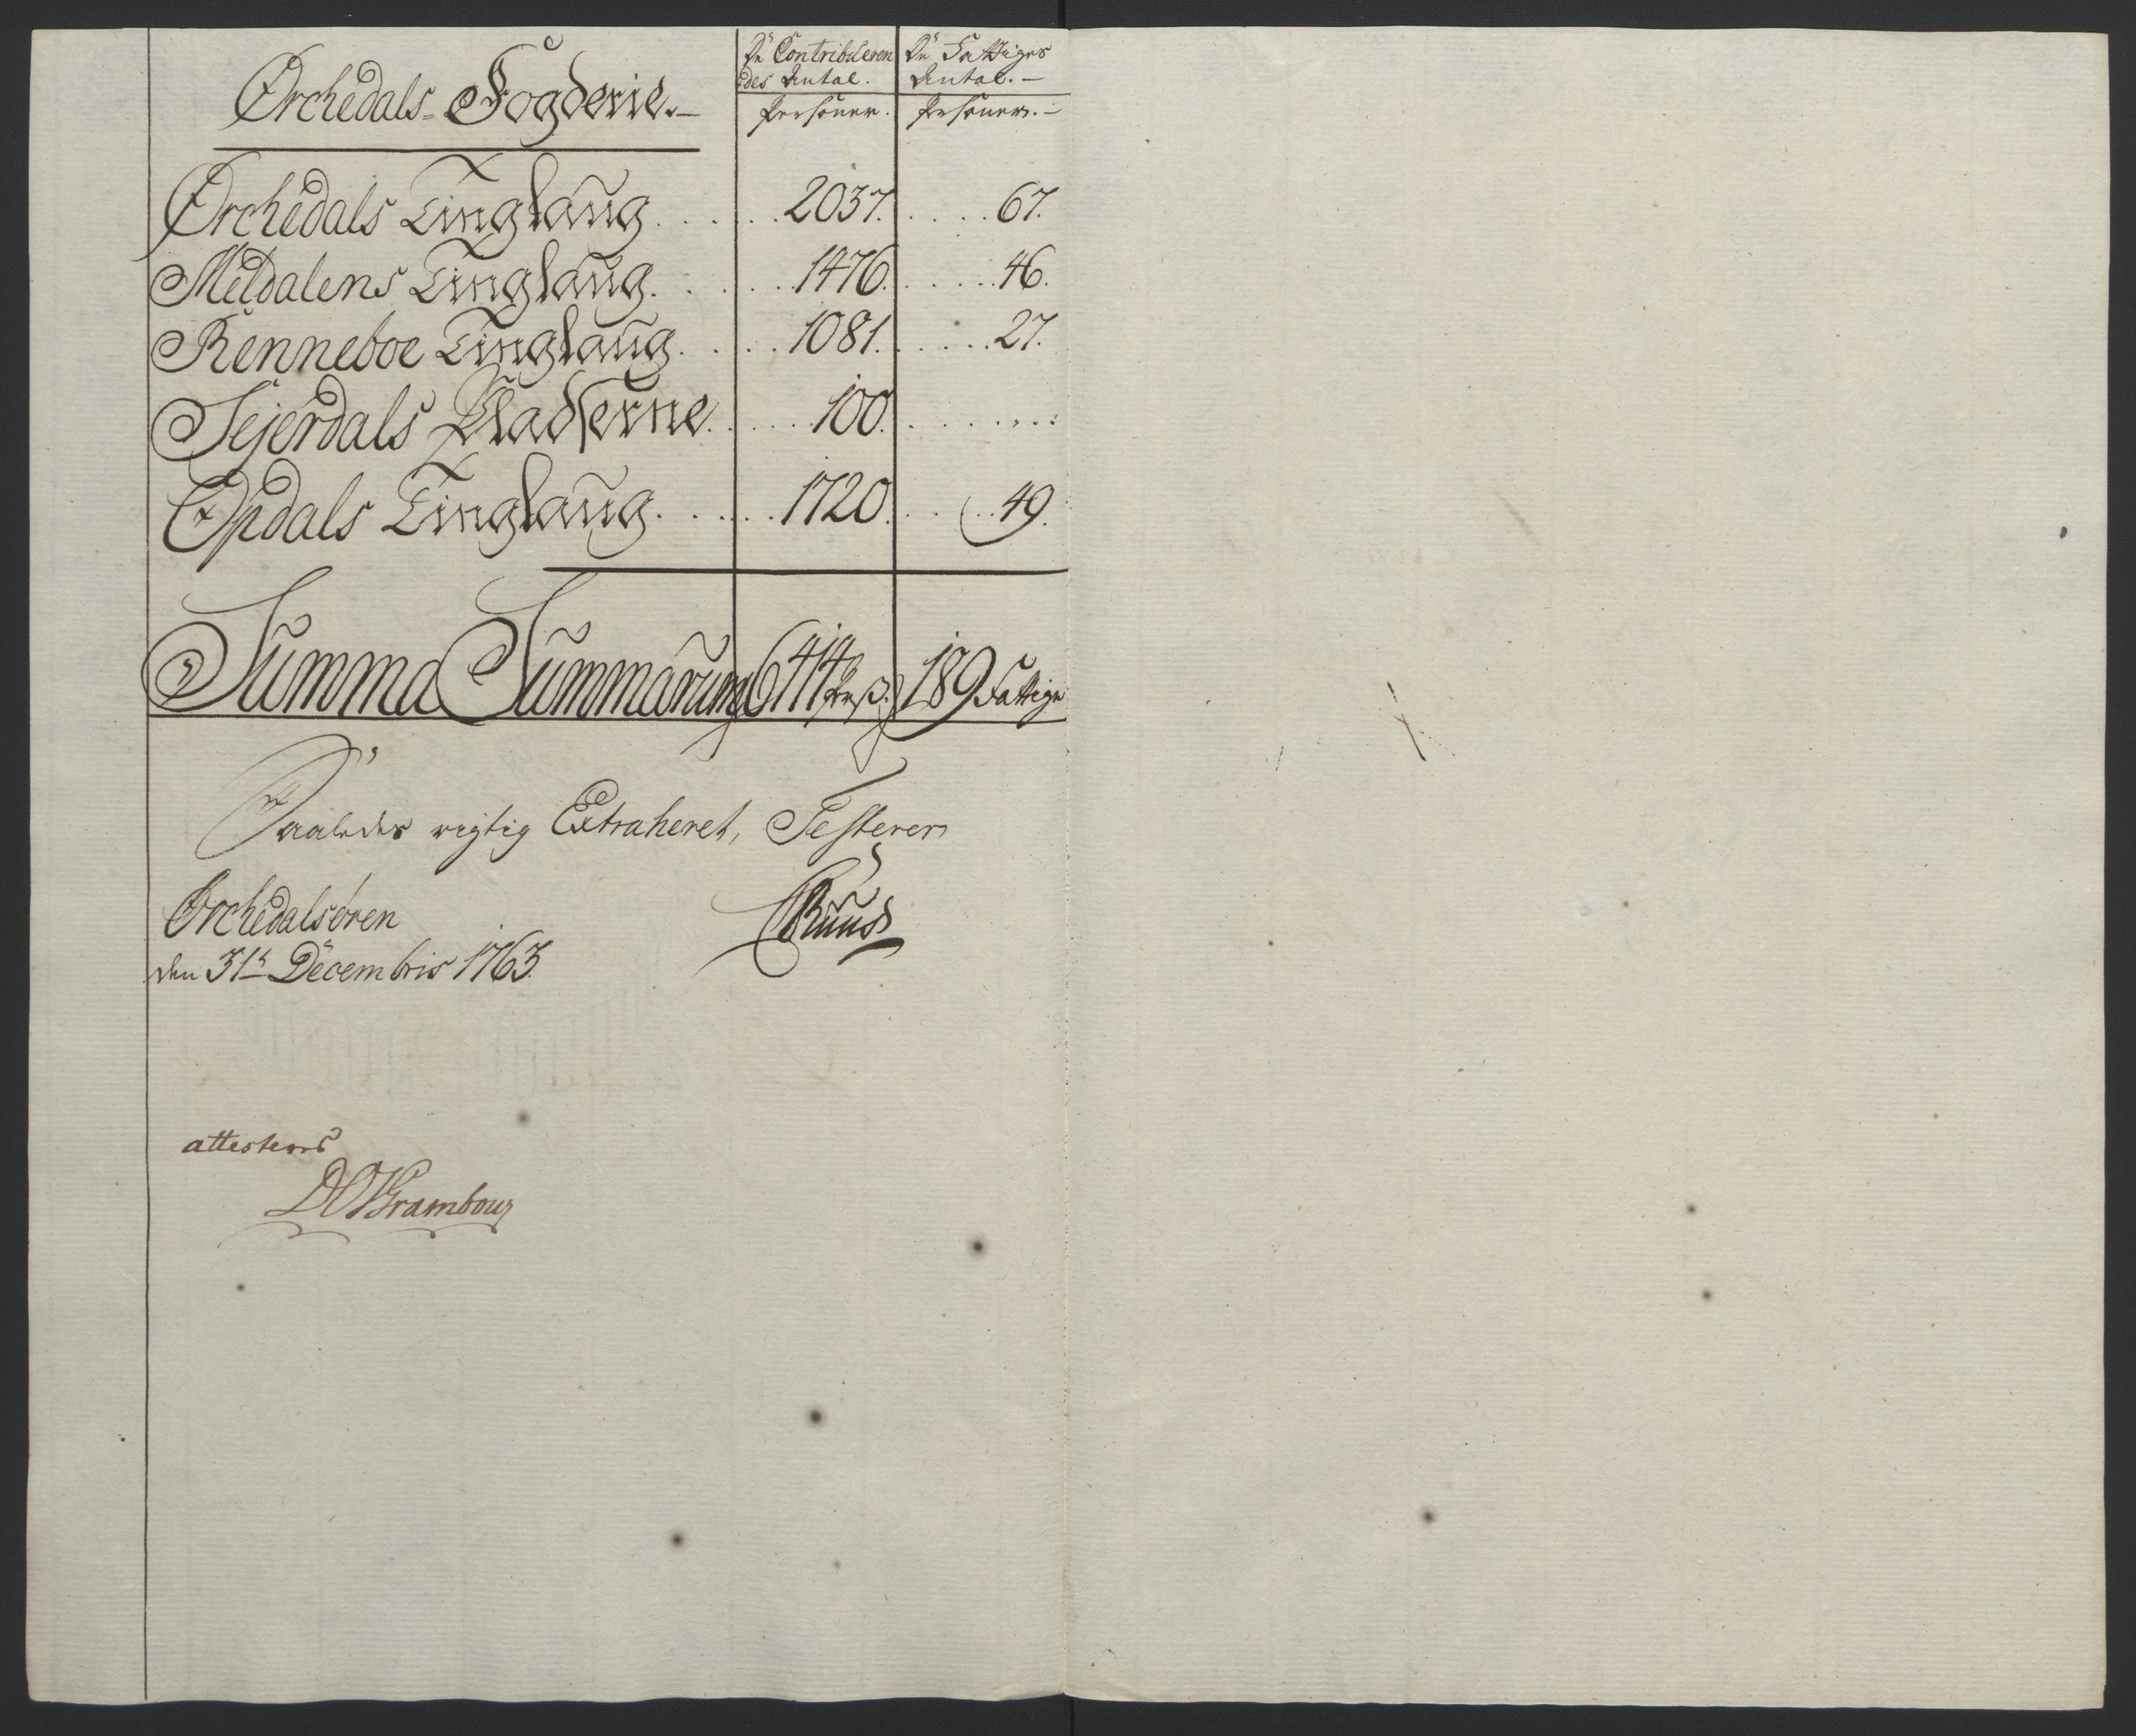 De Contribueren De Fattiges
des Antal. Antal.—
Orchedals Fogderie.—
Personer. Personer.—
Orchedals Tinglaug. . . . . . 2037. . . . . 67.
Meldalens Tinglaug. . . . . 1476. . . . . 46.
Renneboe Tinglaug. . . . . 1081. . . . . 27.
Sejerdals Pladserne . . . . . 100. . . . . . . .
Opdals Tinglaug. . . . . . 1720. . . . . 49.
Summa Summarum 6414 Pers. 189 Fattige
Saaledes rigtig Extraheret, Testerer
Orchedalsøren Ruus
den 31t Decembris 1763.
attesterer